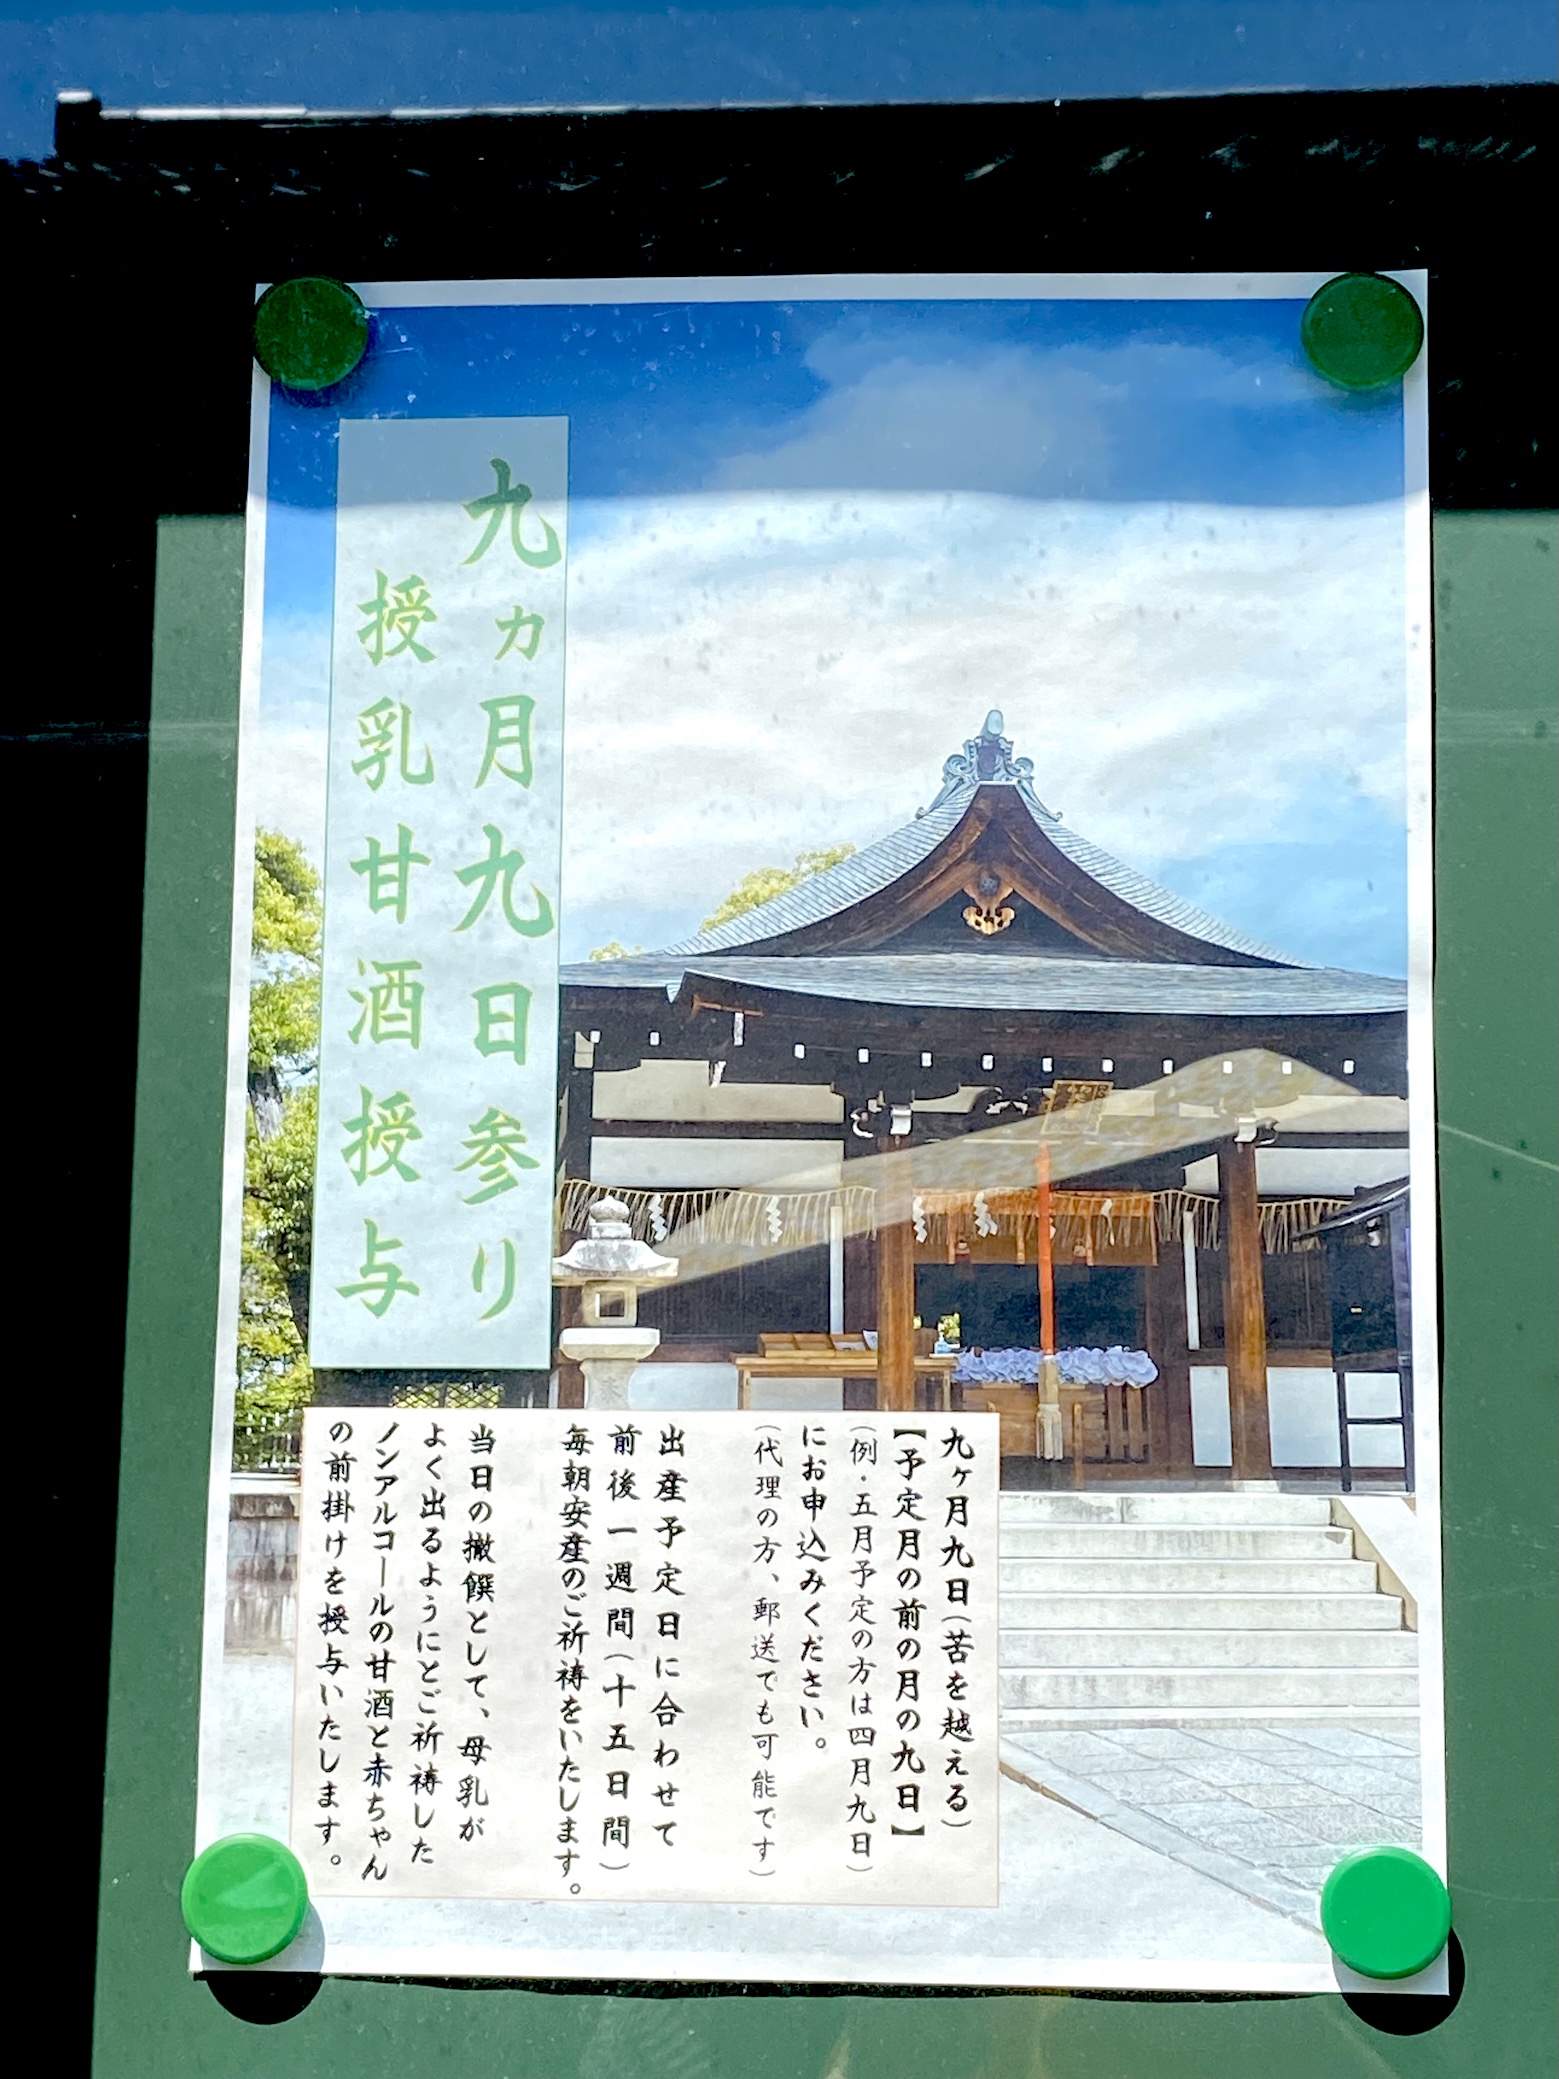 九ヵ月九日参り
授乳甘酒授与
九ヶ月九日(苦を越える)
【予定月の前の月の九日】
(例・五月予定の方は四月九日)
にお申込みください。
(代理の方、郵送でも可能です)
出産予定日に合わせて
前後一週間(十五日間)
毎朝安産のご祈祷をいたします。
当日の撤饌として、母乳が
よく出るようにとご祈祷した
ノンアルコールの甘酒と赤ちゃん
の前掛けを授与いたします。